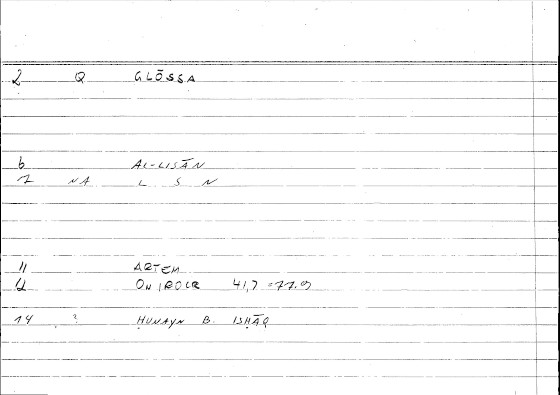 2 Q GLŌSSA
6 AL-LISĀN
7 NA L S N
11 ARTEM
12 ONIROCR 41,7 = 77.9
14 ? ḤUNAYN B. ISḤĀQ